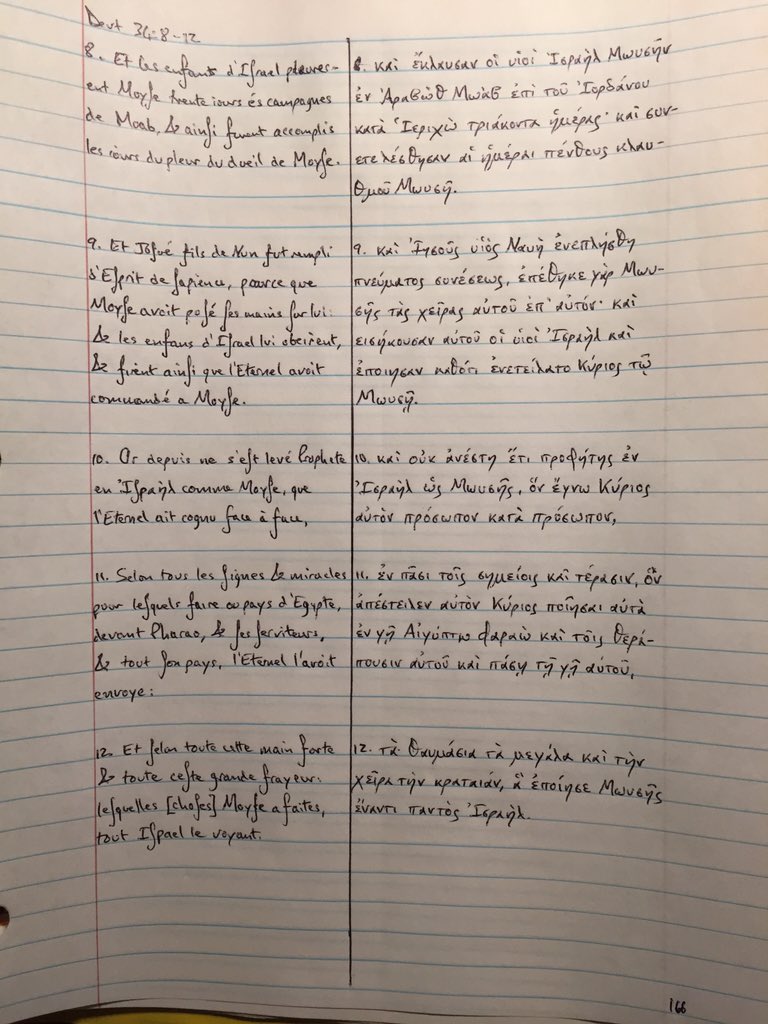 Deut 34:8-12
8. Et les enfants d'Iſrael pleurer-
ent Moyſe trente iours és campagnes
de Moab, & ainſi furent accomplis
les iours du pleur du dueil de Moyſe.
9. Et Ioſué fils de Nun fut rempli
d'Eſprit de ſapience, pource que
Moyſe avoit poſé ſes mains ſur lui:
& les enfans d'Iſrael lui obeirent,
& firent ainſi que l'Eternel avoit
commandé a Moyſe.
10. Or depuis ne s'eſt levé Prophete
en Ἰσραὴλ comme Moyſe, que
l'Eternel ait cognu face à face,
11. Selon tous les ſignes & miracles
pour leſquels faire au pays d'Egypte,
devant Pharao, & ſes ſerviteurs,
& tout ſon pays, l'Eternel l'avoit
envoye:
12. Et ſelon toute cette main forte
& toute ceſte grande frayeur:
leſquelles [choſes] Moyſe a faites,
tout Iſrael le voyant.
8. καὶ ἔκλαυσαν οἱ υἱοὶ Ἰσραὴλ Μωυσῆν
ἐν Ἀραβὼθ Μωὰβ ἐπὶ τοῦ Ἰορδάνου
κατὰ Ἱεριχὼ τριάκοντα ἡμέρας· καὶ συν-
ετελέσθησαν αἱ ἡμέραι πένθους κλαυ-
θμοῦ Μωυσῆ.
9. καὶ Ἰησοῦς υἱὸς Ναυὴ ἐνεπλήσθη
πνεύματος συνέσεως, ἐπέθηκε γὰρ Μωυ-
σῆς τὰς χεῖρας αὐτοῦ ἐπ' αὐτόν· καὶ
εισήκουσαν αὐτοῦ οἱ υἱοὶ Ἰσραὴλ καὶ
ἐποίησαν καθότι ἐνετείλατο Κύριος τῷ
Μωυσῇ.
10. καὶ οὐκ ἀνέστη ἔτι προφήτης ἐν
Ἰσραὴλ ὡς Μωυσῆς, ὃν ἔγνω Κύριος
αὐτὸν πρόσωπον κατὰ πρόσωπον,
11. ἐν πᾶσι τοῖς σημείοις καὶ τέρασιν, ὃν
ἀπέστειλεν αὐτὸν Κύριος ποιῆσαι αὐτὰ
ἐν γῇ Αἰγύπτῳ Φαραὼ καὶ τοῖς θερά-
πουσιν αὐτοῦ καὶ πάσῃ τῇ γῇ αὐτοῦ,
12. τὰ θαυμάσια τὰ μεγάλα καὶ τὴν
χεῖρα τὴν κραταιάν, ἃ ἐποίησε Μωυσῆς
ἔναντι παντὸς Ἰσραήλ.
166